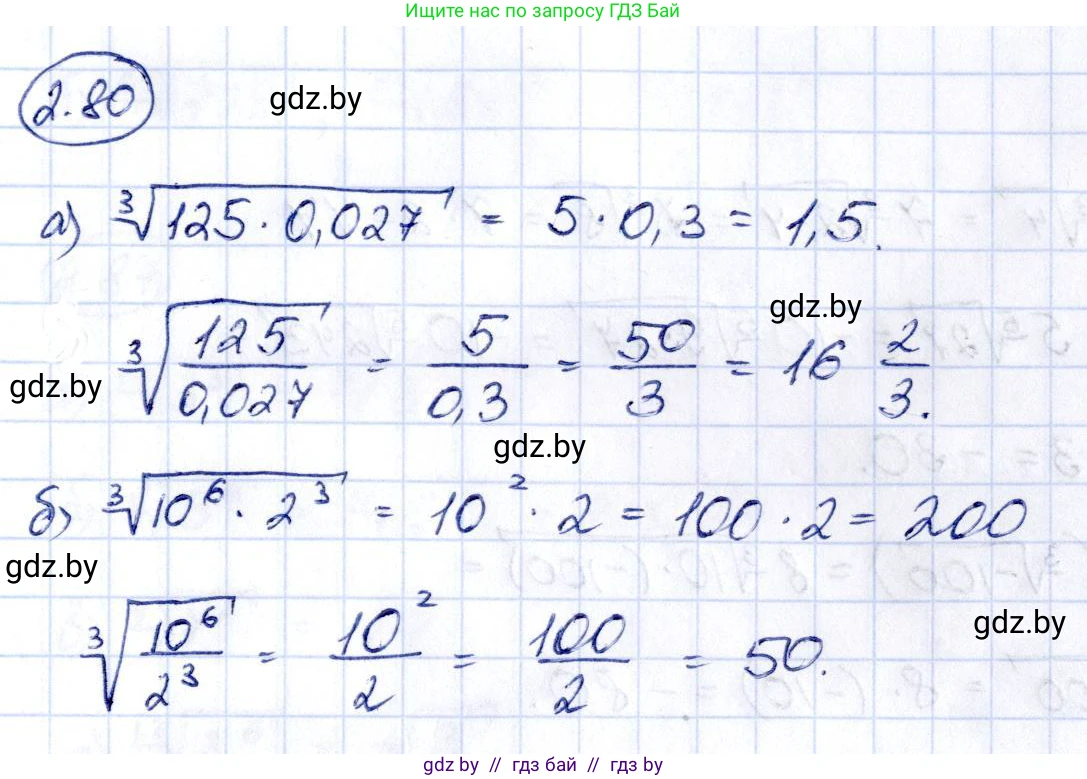 Ищите нас по запросу ГДЗ Бай
2.80
gdz.by
а) ∛(125 · 0,027) = 5 · 0,3 = 1,5.
gdz.by
∛(125/0,027) = 5/0,3 = 50/3 = 16 2/3.
gdz.by
gdz.by
б) ∛(10⁶ · 2³) = 10² · 2 = 100 · 2 = 200
gdz.by
gdz.by
∛(10⁶/2³) = 10²/2 = 100/2 = 50.
gdz.by // гдз бай // гдз by